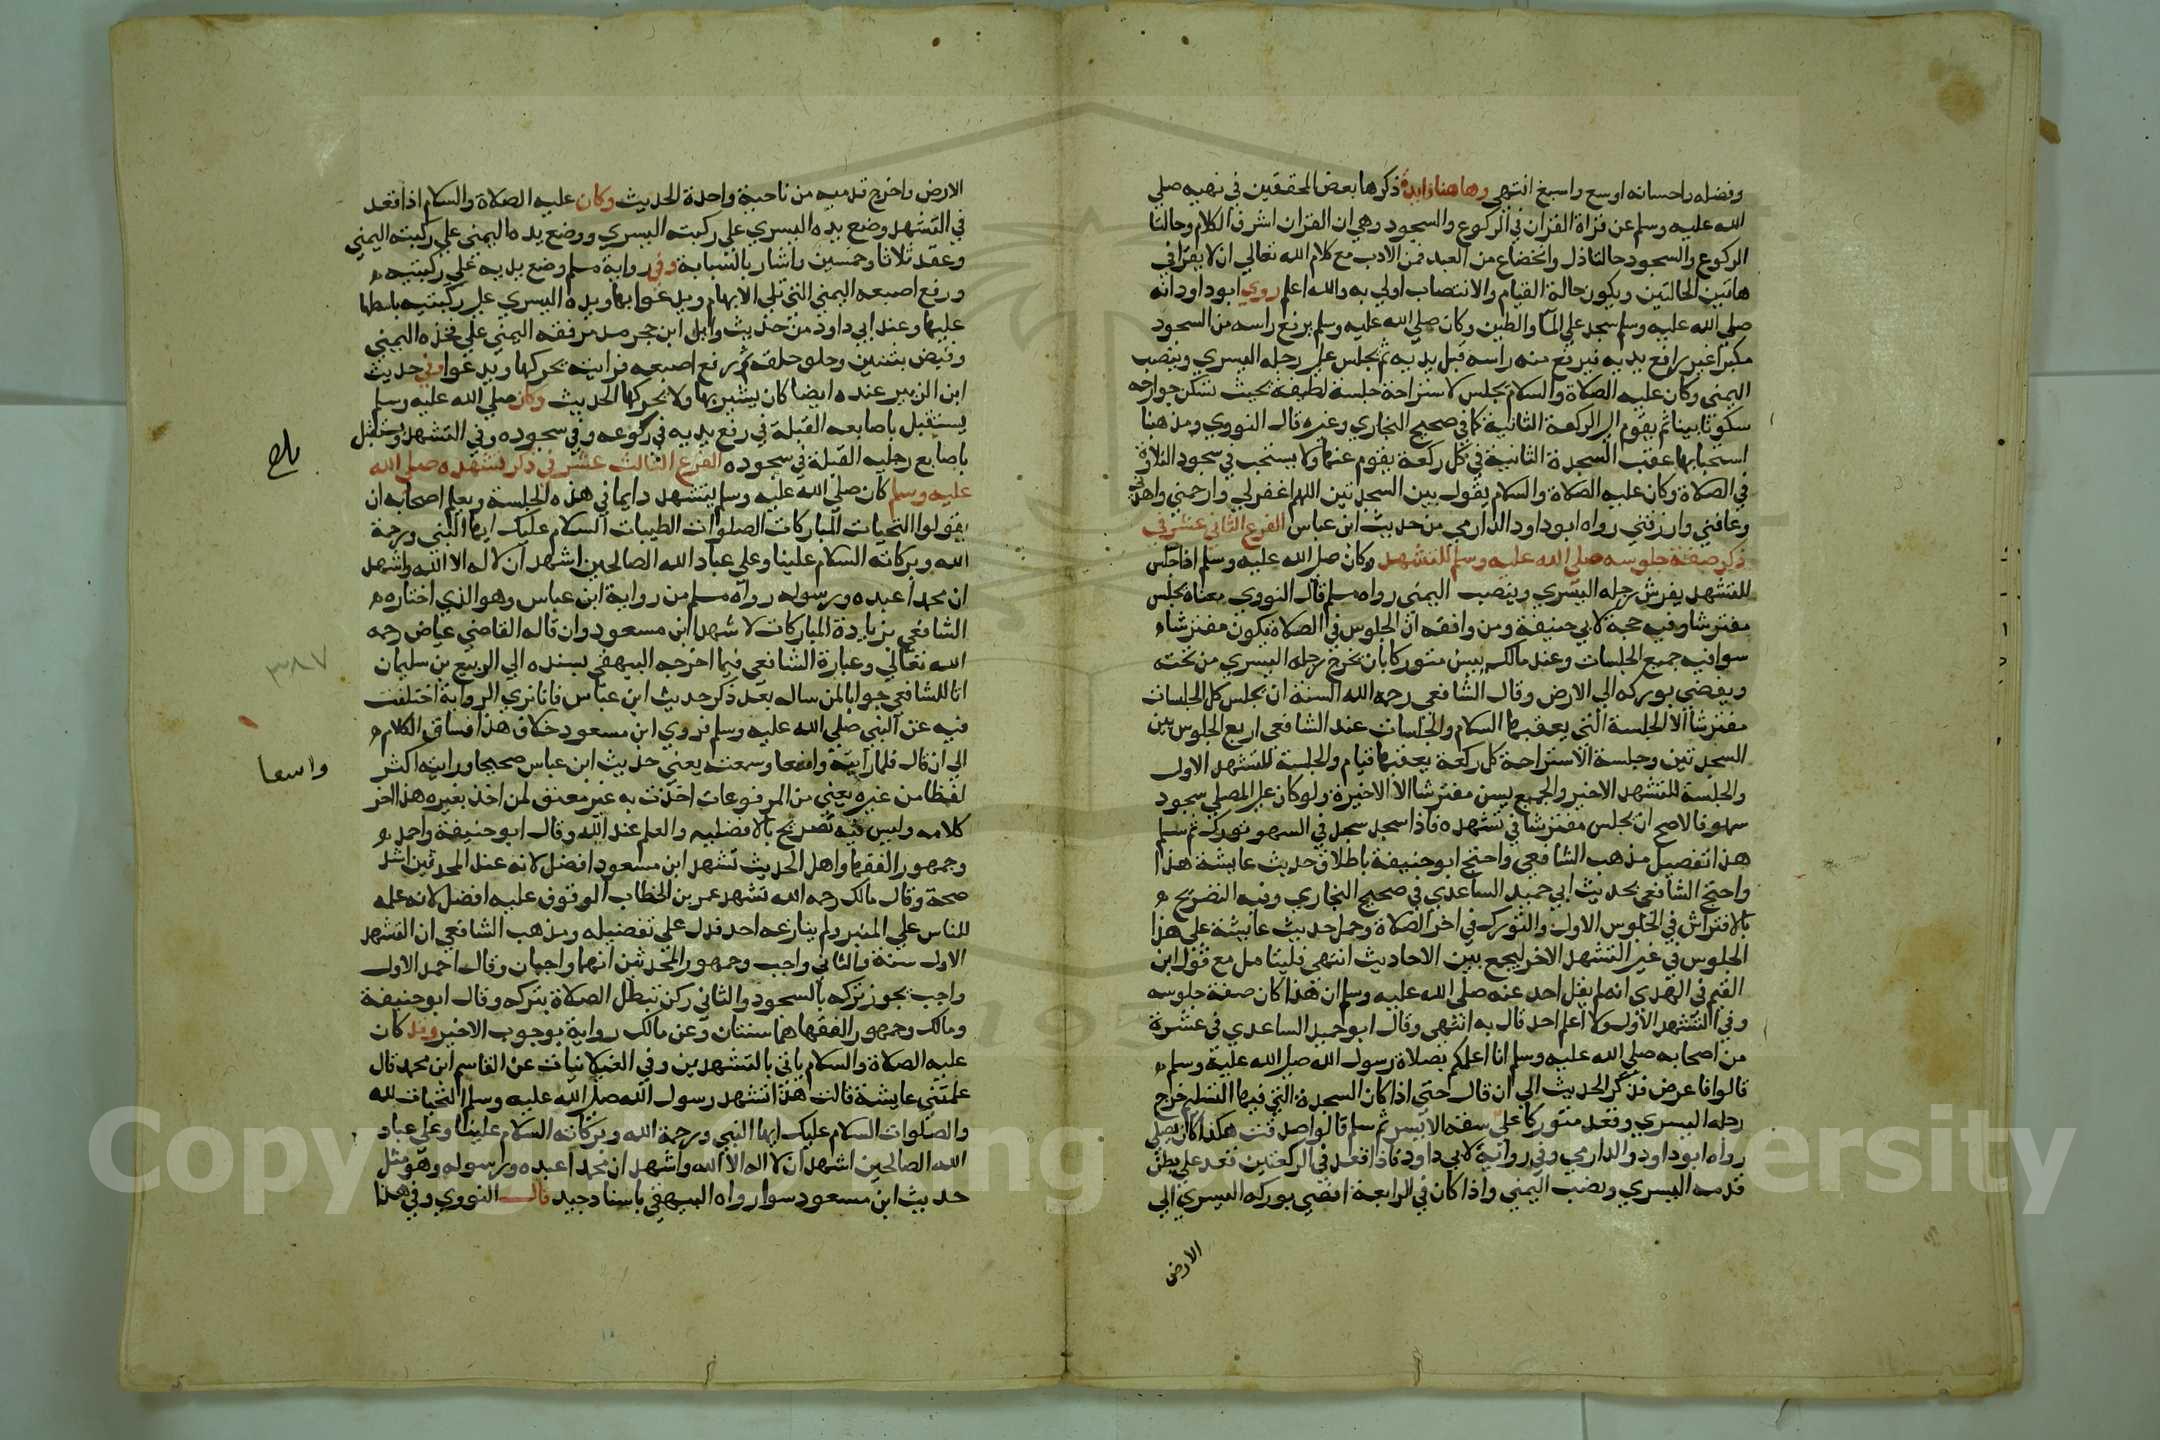 وفضله واحسانه اوسع واسبغ انتهى وهاهنا زايدة ذكرها بعض المحققين في نهيه صلي
الله عليه وسلم عن قراة القران في الركوع والسجود وهي ان القران اشرف الكلام وحالتا
الركوع والسجود حالتا ذل وانخضاع من العبد فمن الادب مع كلام الله تعالي ان لا يقرا في
هاتين الحالتين ويكون حالة القيام والانتصاب اولي به والله اعلم روي ابو داود انه
صلي الله عليه وسلم سجد علي الما والطين وكان صلي الله عليه وسلم يرفع راسه من السجود
مكبرا غير رافع يديه فيرفع منه راسه قبل يديه ثم يجلس علي رجله اليسري وينصب
اليمني وكان عليه الصلاة والسلام يجلس لاستراحة جلسة لطيفة بحيث تسكن جوارحه
سكونا بينا ثم يقوم الي الركعة الثانية كما في صحيح البخاري وغيره قال النووي ومذهبنا
استحبابها عقب السجدة الثانية في كل ركعة يقوم عنها ولا يستحب في سجود التلاوة
في الصلاة وكان عليه الصلاة والسلام يقول بين السجدتين اللهم اغفر لي وارحمني واهدني
وعافني وارزقني رواه ابو داود الدارمي من حديث ابن عباس الفرع الثاني عشر في
ذكر صفة جلوسه صلي الله عليه وسلم للتشهد وكان صلي الله عليه وسلم اذا جلس
للتشهد يفرش رجله اليسري وينصب اليمني رواه مسلم قال النووي معناه يجلس
مفترشا وفيه حجة لابي حنيفة ومن وافقه ان الجلوس في الصلاة يكون مفترشا
سوا فيه جميع الجلسات وعند مالك يسن متوركا بان يخرج رجله اليسري من تحته
ويفضي بوركه الي الارض وقال الشافعي رحمه الله السنة ان يجلس كل الجلسات
مفترشا الا الجلسة التي يعقبها السلام والجلسات عند الشافعي اربع الجلوس بين
السجدتين وجلسة الاستراحة كل ركعة يعقبها قيام والجلسة للتشهد الاول
والجلسة للتشهد الاخير والجميع يسن مفترشا الا الاخيرة ولو كان علي المصلي سجود
سهو فالاصح ان يجلس مفترشا في تشهده فاذا سجد سجد في السهو تورك ثم سلم
هذا تفصيل مذهب الشافعي واحتج ابو حنيفة باطلاق حديث عايشة هذا
واحتج الشافعي بحديث ابي حميد الساعدي في صحيح البخاري وفيه التصريح
بالافتراش في الجلوس الاول والتورك في اخر الصلاة وحمل حديث عايشة علي هذا
الجلوس في غير التشهد الاخر ليجمع بين الاحاديث انتهي فليتامل مع قول ابن
القيم في الهدي انه لم يقل احد عنه صلي الله عليه وسلم ان هذا كان صفة جلوسه
وفي التشهد الاول ولا اعلم احد قال به انتهي وقال ابو حميد الساعدي في عشرة
من اصحابه صلي الله عليه وسلم انا اعلمكم بصلاة رسول الله صلي الله عليه وسلم
قالوا فاعرض فذكر الحديث الي ان قال حتي اذا كان السجدة التي فيها التسليم خرج
رجله اليسري وقعد متوركا علي شقه الايسر ثم سلم قالوا صدقت هكذا كان يصلي
رواه ابو داود والدارمي وفي رواية لابي داود فاذا قعد في الركعتين قعد علي بطن
قدمه اليسري ونصب اليمني واذا كان في الرابعة افضي بوركه اليسري الي
الارض
الارض واخرج قدميه من ناحية واحدة الحديث وكان عليه الصلاة والسلام اذا قعد
في التشهد وضع يده اليسري علي ركبته اليسري ووضع يده اليمني علي ركبته اليمني
وعقد ثلاثا وخمسين واشار بالسبابة وفي رواية مسلم وضع يديه علي ركبتيه
ورفع اصبعه اليمني التي تلي الابهام ويدعوا بها ويده اليسري علي ركبتيه باسطها
عليها وعند ابي داود من حديث وايل ابن حجر مد مرفقه اليمني علي فخذه اليمني
وقبض بثنتين وحلق حلقه ثم رفع اصبعه فرايته يحركها ويدعوا وفي حديث
ابن الزبير عنده ايضا كان يشير بها ولا يحركها الحديث وكان صلي الله عليه وسلم
يستقبل باصابعه القبلة في رفع يديه في ركوعه وفي سجوده وفي التشهد ويستقبل
باصابع رجليه القبلة في سجوده الفرع الثالث عشر في ذكر تشهده صلي الله
عليه وسلم كان صلي الله عليه وسلم يتشهد دايما في هذه الجلسة ويعلم اصحابه ان
يقولوا التحيات المباركات الصلوات الطيبات السلام عليك ايها النبي ورحمة
الله وبركاته السلام علينا وعلي عباد الله الصالحين اشهد ان لا اله الا الله واشهد
ان محمدا عبده ورسوله رواه مسلم من رواية ابن عباس وهو الذي اختاره
الشافعي بزيادة المباركات لا شهد ابن مسعود وان قاله القاضي عياض رحمه
الله تعالي وعبارة الشافعي فيما اخرجه البيهقي بسنده الي الربيع بن سليمان
انا للشافعي جوابا لمن ساله بعد ذكر حديث ابن عباس فانا نري الرواية اختلفت
فيه عن النبي صلي الله عليه وسلم فروي ابن مسعود خلاف هذا فساق الكلام
الي ان قال فلما رايته واقعا وسمعت يعني حديث ابن عباس صحيحا ورايته اكثر
لفظا من غيره يعني من المرفوعات اخذت به غير معنق لمن اخذ بغيره هذا اخر
كلامه وليس فيه تصريح بالافضليه والعلم عند الله وقال ابو حنيفة واحمد
وجمهور الفقها واهل الحديث تشهد ابن مسعود افضل لانه عند المحدثين اشد
صحة وقال مالك رحمه الله تشهد عمر بن الخطاب الموقوف عليه افضل لانه علمه
للناس علي المنبر ولم ينازعه احد فدل علي تفضيله ومذهب الشافعي ان التشهد
الاول سنة والثاني واجب وجمهور المحدثين انهما واجبان وقال احمد الاول
واجب يجوز تركه بالسجود والثاني ركن تبطل الصلاة بتركه وقال ابو حنيفة
ومالك وجمهور الفقها هما سنتان وعن مالك رواية بوجوب الاخير وقد كان
عليه الصلاة والسلام ياتي بالتشهدين وفي الغيلانيات عن القاسم ابن محمد قال
علمتني عايشة قالت هذا تشهد رسول الله صلي الله عليه وسلم التحيات لله
والصلوات السلام عليك ايها النبي ورحمة الله وبركاته السلام علينا وعلي عباد
الله الصالحين اشهد ان لا اله الا الله واشهد ان محمدا عبده ورسوله وهو مثل
حديث ابن مسعود سوا رواه البيهقي باسناد جيد قال النووي وفي هذا
بلغ
٣٨٧
واسعا
Copyright © King Saud University